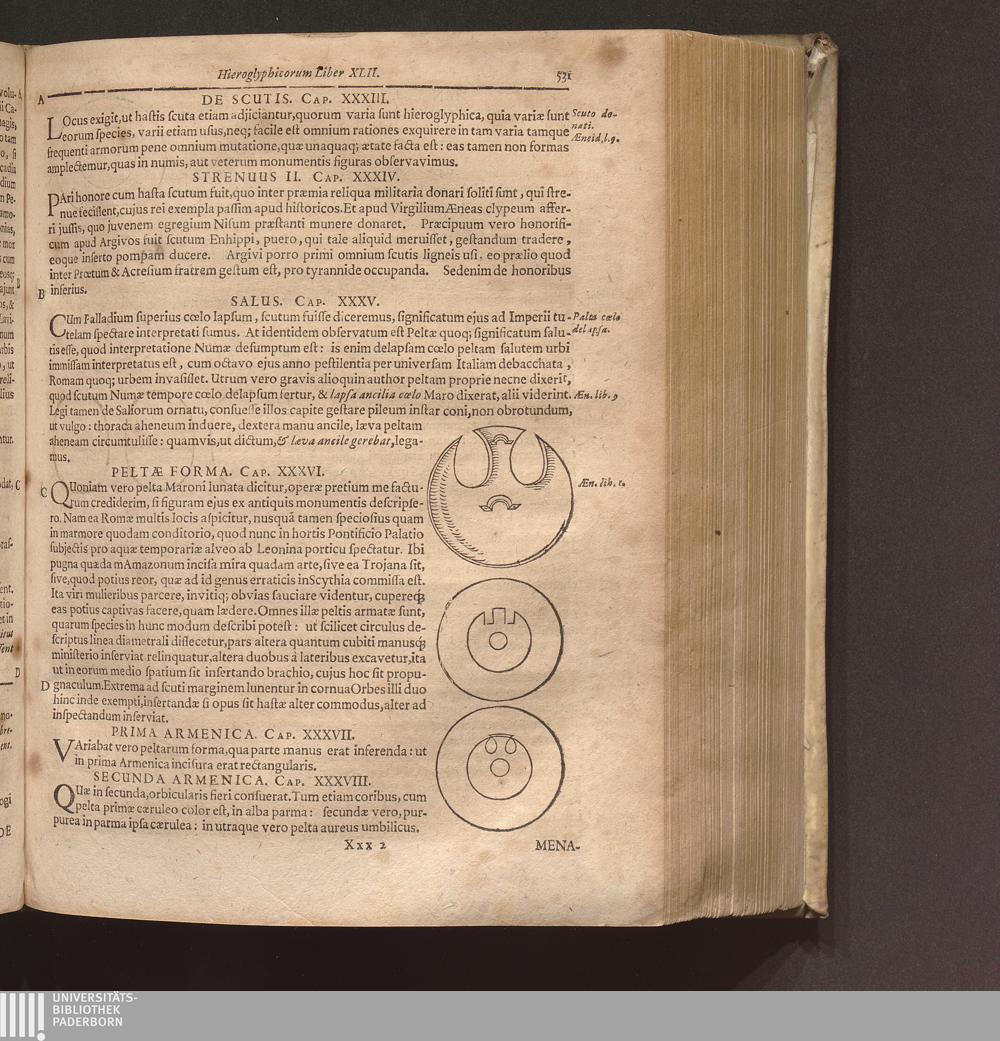 Hieroglyphicorum Liber XLII.
531
A
DE SCUTIS. CAP. XXXIII.
LOcus exigit, ut hastis scuta etiam adjiciantur, quorum varia sunt hieroglyphica, quia variæ sunt
eorum species, varii etiam usus, neq; facile est omnium rationes exquirere in tam varia tamque
frequenti armorum pene omnium mutatione, quæ unaquaq; ætate facta est: eas tamen non formas
amplectemur, quas in numis, aut veterum monumentis figuras observavimus.
Scuto do-
nati.
Æneid, l. 9.
STRENUUS II. CAP. XXXIV.
PAri honore cum hasta scutum fuit, quo inter præmia reliqua militaria donari soliti sunt, qui stre-
nue fecissent, cujus rei exempla passim apud historicos. Et apud Virgilium Æneas clypeum affer-
ri jussis, quo juvenem egregium Nisum præstanti munere donaret. Præcipuum vero honorifi-
cum apud Argivos fuit scutum Enhippi, puero, qui tale aliquid meruisset, gestandum tradere,
eoque inserto pompam ducere. Argivi porro primi omnium scutis ligneis usi, eo prælio quod
inter Prœtum & Acresium fratrem gestum est, pro tyrannide occupanda. Sed enim de honoribus
B inferius.
SALUS. CAP. XXXV.
CUm Palladium superius cœlo lapsum, scutum fuisse diceremus, significatum ejus ad Imperii tu-
telam spectare interpretati sumus. At identidem observatum est Peltæ quoq; significatum salu-
tis esse, quod interpretatione Numæ desumptum est: is enim delapsam cœlo peltam salutem urbi
immissam interpretatus est, cum octavo ejus anno pestilentia per universam Italiam debacchata,
Romam quoq; urbem invasisset. Utrum vero gravis alioquin author peltam proprie necne dixerit,
quod scutum Numæ tempore cœlo delapsum fertur, & lapsa ancilia cœlo Maro dixerat, alii viderint.
Legi tamen de Saliorum ornatu, consuesse illos capite gestare pileum instar coni, non obrotundum,
ut vulgo: thoraca aheneum induere, dextera manu ancile, læva peltam
aheneam circumtulisse: quamvis, ut dictum, & læva ancile gerebat, lega-
mus.
Palta cœlo
delapsa.
Æn. lib. 9
PELTÆ FORMA. CAP. XXXVI.
C QUoniam vero pelta Maroni lunata dicitur, operæ pretium me factu-
rum crediderim, si figuram ejus ex antiquis monumentis descripse-
ro. Nam ea Romæ multis locis aspicitur, nusquã tamen speciosius quam
in marmore quodam conditorio, quod nunc in hortis Pontificio Palatio
subjectis pro aquæ temporariæ alveo ab Leonina porticu spectatur. Ibi
pugna quæda mAmazonum incisa mira quadam arte, sive ea Trojana sit,
sive, quod potius reor, quæ ad id genus erraticis inScythia commissa est.
Ita viri mulieribus parcere, invitiq; obvias sauciare videntur, cupereq;
eas potius captivas facere, quam lædere. Omnes illæ peltis armatæ sunt,
quarum species in hunc modum describi potest: ut scilicet circulus de-
scriptus linea diametrali dissecetur, pars altera quantum cubiti manusq;
ministerio inserviat relinquatur, altera duobus à lateribus excavetur, ita
ut in eorum medio spatium sit insertando brachio, cujus hoc sit propu-
D gnaculum. Extrema ad scuti marginem lunentur in cornua Orbes illi duo
hinc inde exempti, insertandæ si opus sit hastæ alter commodus, alter ad
inspectandum inserviat.
Æn. lib. 1.
PRIMA ARMENICA. CAP. XXXVII.
VAriabat vero peltarum forma, qua parte manus erat inferenda: ut
in prima Armenica incisura erat rectangularis.
SECUNDA ARMENICA. CAP. XXXVIII.
QUæ in secunda, orbicularis fieri consuerat. Tum etiam coribus, cum
pelta primæ cæruleo color est, in alba parma: secundæ vero, pur-
purea in parma ipsa cærulea: in utraque vero pelta aureus umbilicus.
Xxx 2
MENA-
UNIVERSITÄTS-
BIBLIOTHEK
PADERBORN